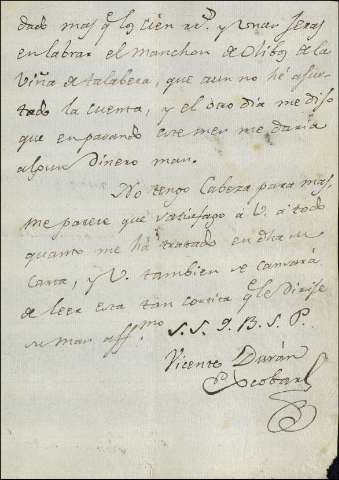 dado mas q.e los cien r.s y unas Jeras
en labrar el Manchon de Olibos de la
Viña de talabera, que aun no hé ajus-
tado la cuenta, y el otro dia me dijo
que en pasando este mes me daria
algun dinero mas.
No tengo Cabeza para mas,
me parece que satisfago á V. á todo
quanto me há tratado en dha su
Carta, y V. tambien se cansará
de leer esta tan cortita q.e le dirije
su mas aff.mo S. S. q. B. S. P.
Vicente Durán
Escobar